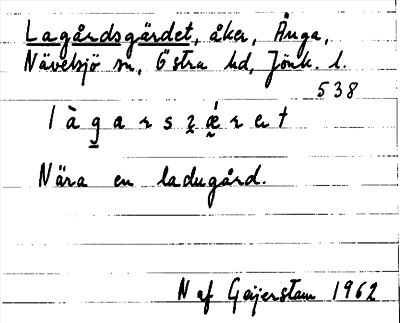 Lagårdsgärdet, åker, Ånga,
Nävelsjö sn, Östra hd, Jönk. l.
538
Nära en ladugård.
N af Geijerstam 1962